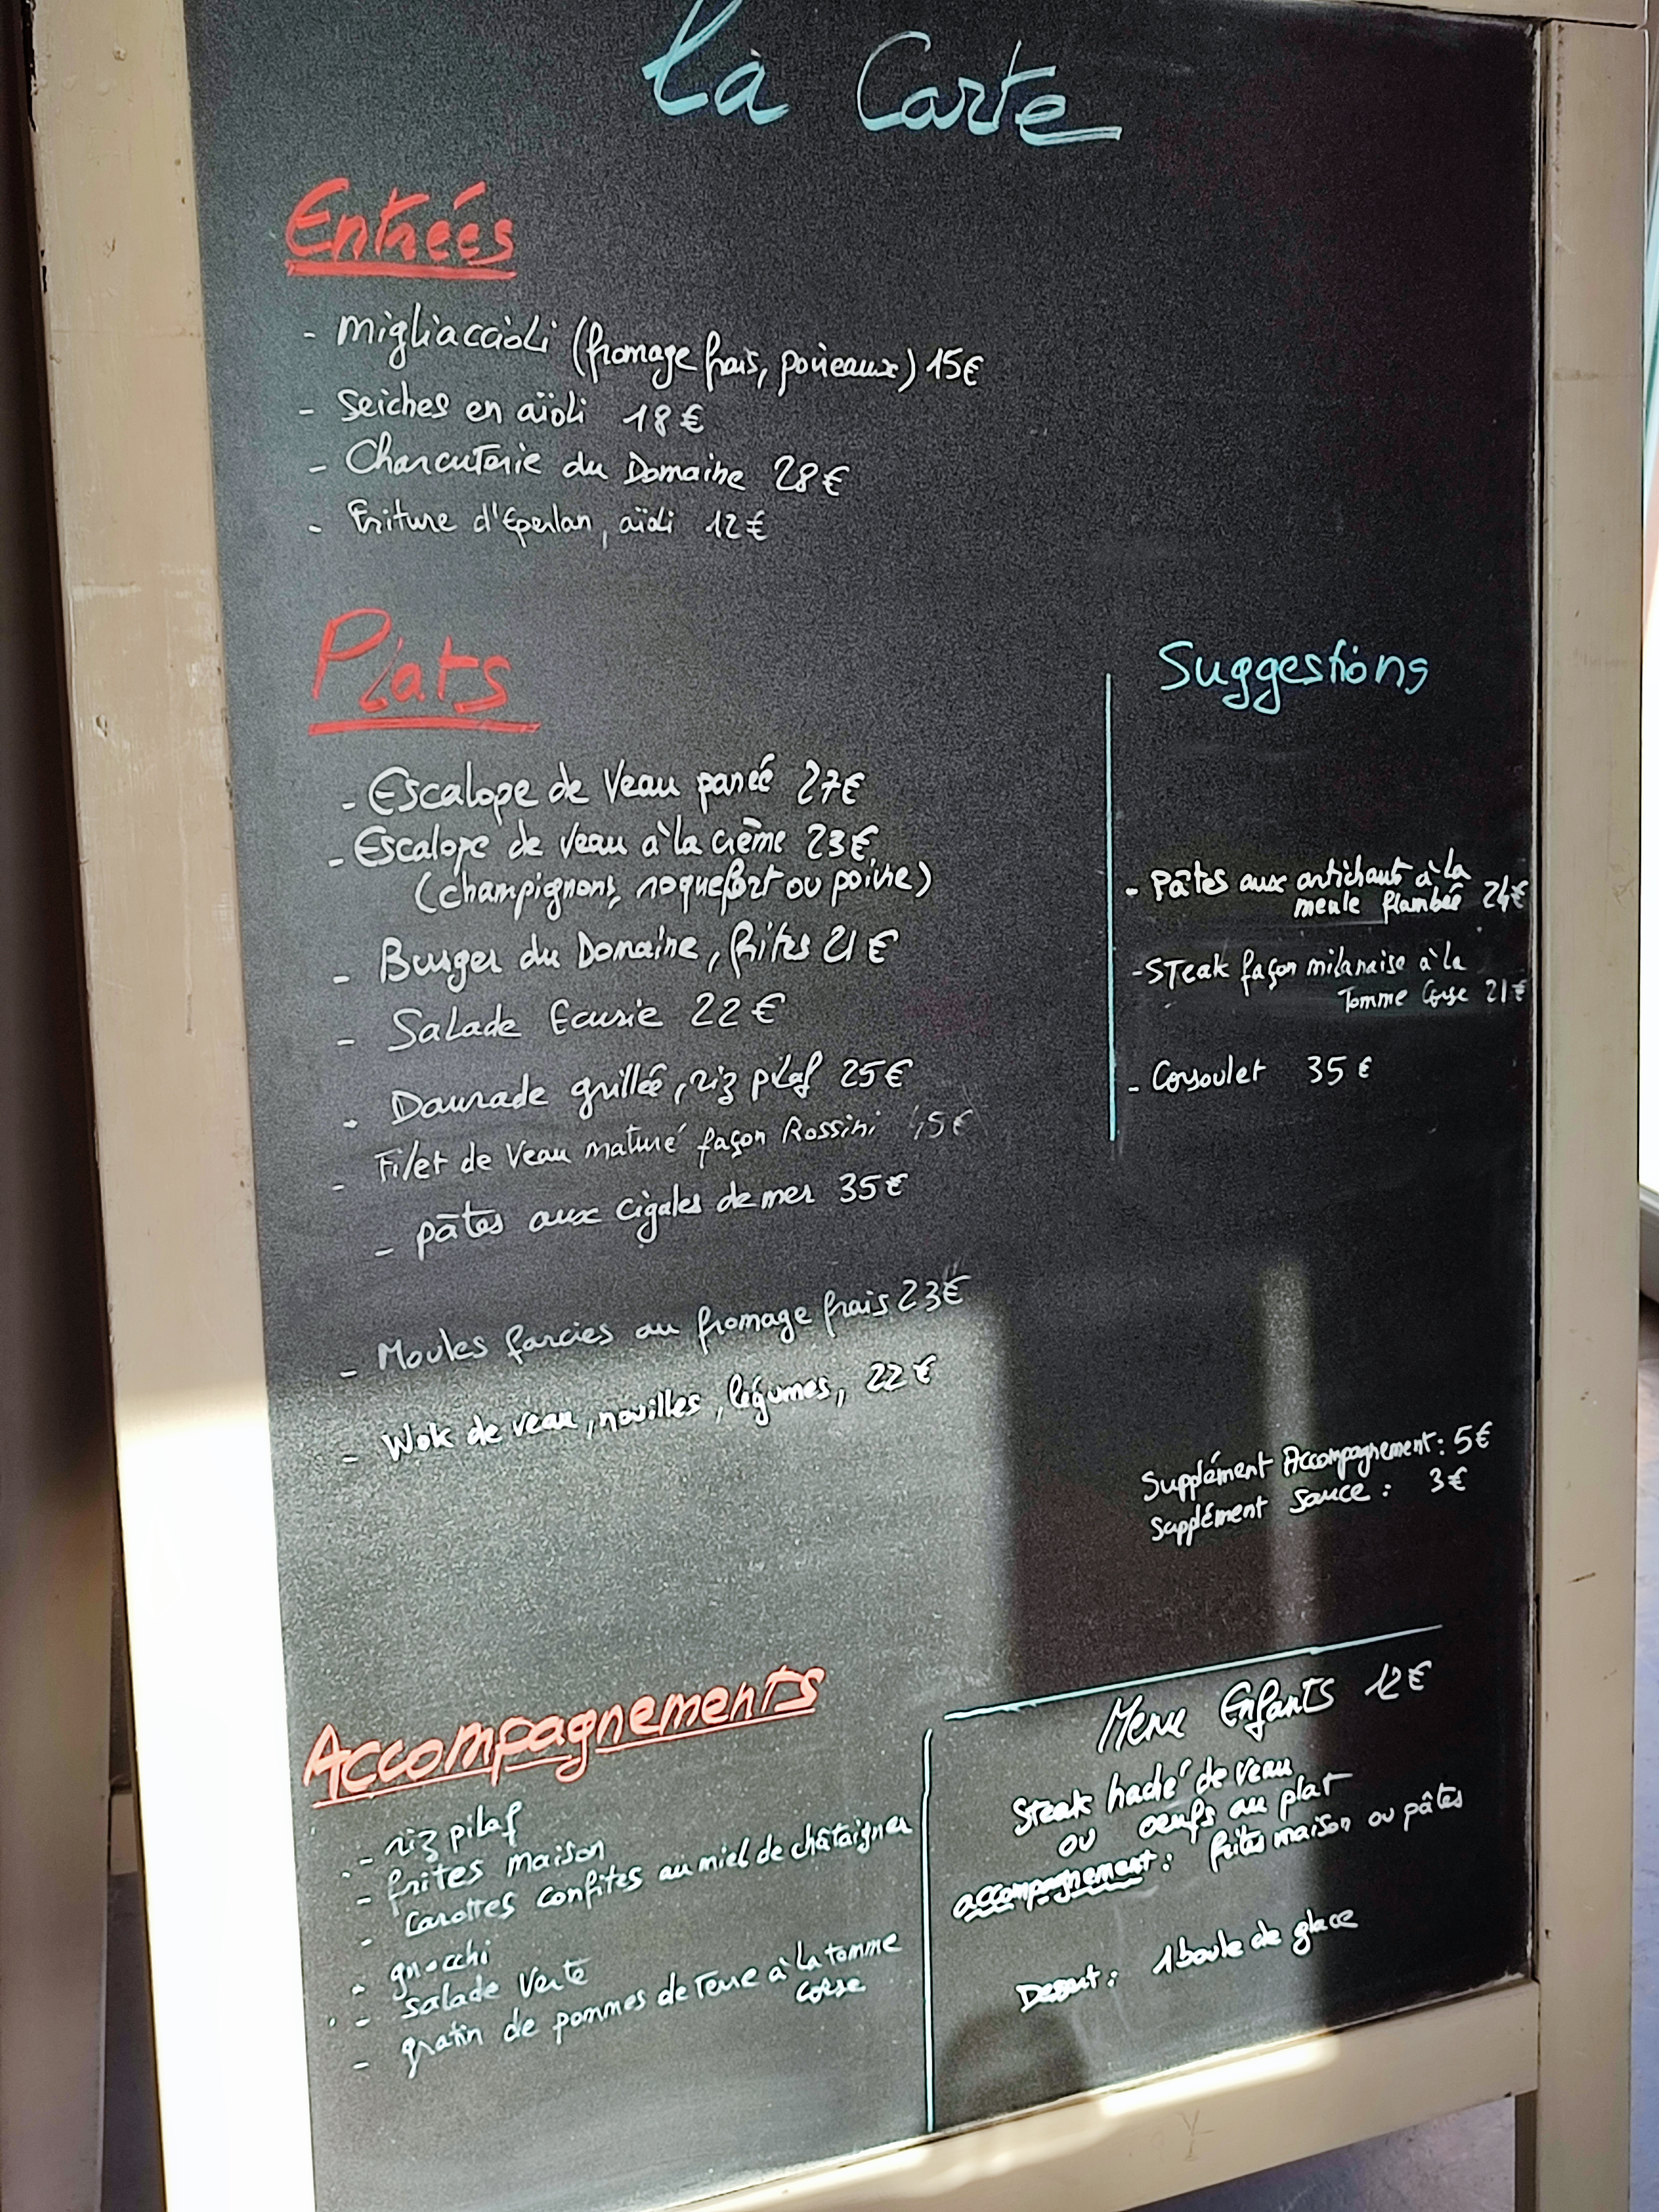 La Carte
Entrées
- Migliaccioli (fromage frais, poireaux) 15€
- Seiches en aïoli 18€
- Charcuterie du Domaine 28€
- Friture d'Eperlan, aïoli 12€
Plats
- Escalope de Veau panée 27€
- Escalope de veau à la crème 23€
(champignons, roquefort ou poivre)
- Burger du Domaine, frites 21€
- Salade Ecurie 22€
- Daurade grillée, riz pilaf 25€
- Filet de Veau maturé façon Rossini 45€
- pâtes aux cigales de mer 35€
- Moules farcies au fromage frais 23€
- Wok de veau, nouilles, légumes, 22€
Suggestions
- Pâtes aux artichauts à la
meule flambée 24€
- Steak façon milanaise à la
Tomme Corse 21€
- Corsoulet 35€
Supplément Accompagnement : 5€
Supplément Sauce : 3€
Accompagnements
- riz pilaf
- frites maison
- carottes confites au miel de châtaigner
- gnocchi
- salade verte
- gratin de pommes de terre à la tomme
corse
Menu Enfants 12€
Steak haché de veau
ou oeufs au plat
accompagnement : frites maison ou pâtes
Dessert : 1 boule de glace